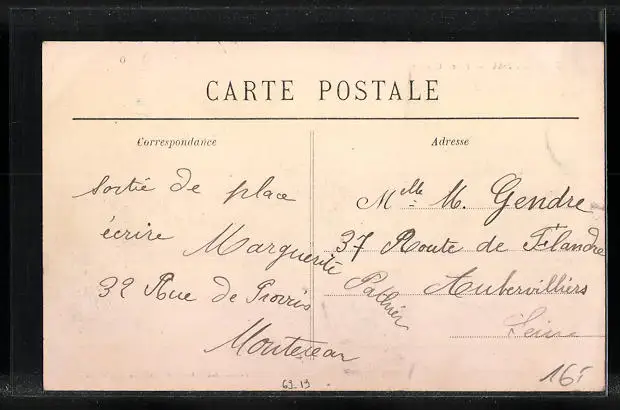 CARTE POSTALE
Correspondance
Adresse
sortie de place
écrire Marguerite
32 Rue de Provins
Montereau
Mlle M. Gendre
37 Route de Filandre
Aubervilliers
Seine
69-13
16f